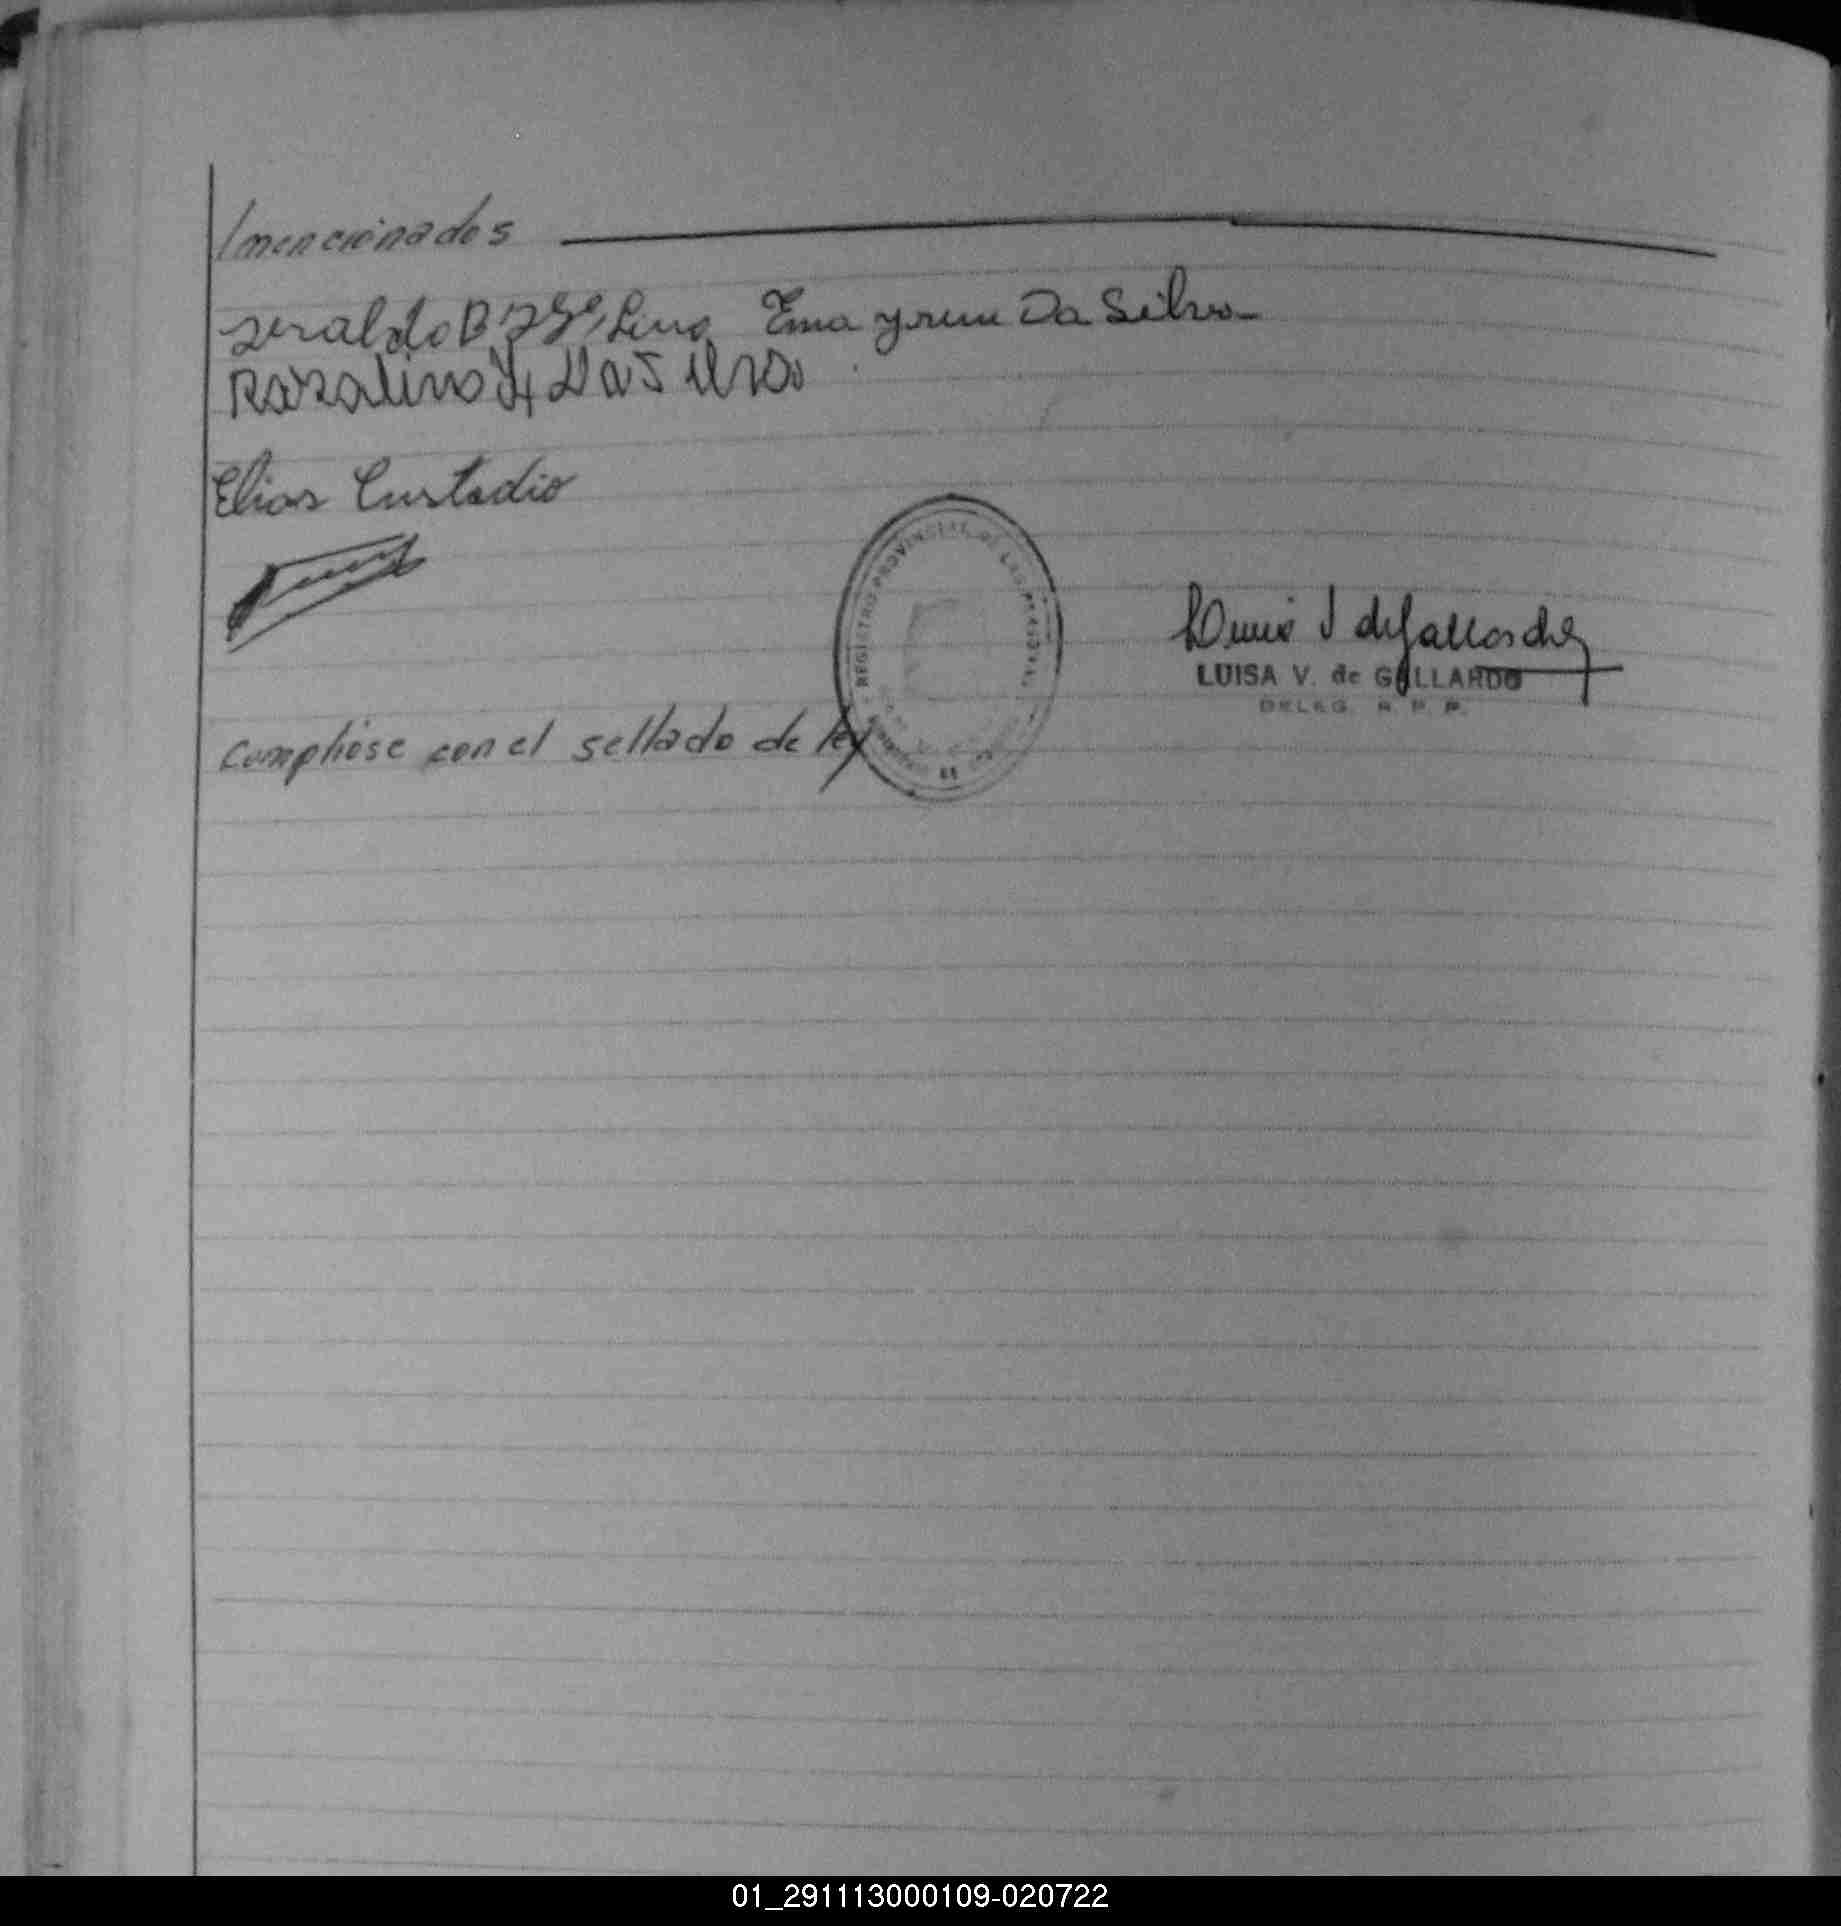 /mencionados
Ema yrene Da Silva
Da Silva
Elias Custodio
REGISTRO PROVINCIAL DE LAS PERSONAS
de Gallardo
LUISA V. de GALLARDO
DELEG. R. P. P.
Complióse con el sellado de ley
01_291113000109-020722